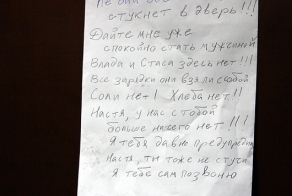 стукнет в дверь!!!
Дайте мне уже
спокойно спать мужчиной
Влада и Стаса здесь нет!!!
Все зарядки они взяли с собой
Соли нет! Хлеба нет!!
Настя, у нас с тобой
больше ничего нет!!!
Я тебя давно предупредил
Настя, ты тоже не стучи
Я тебе сам позвоню